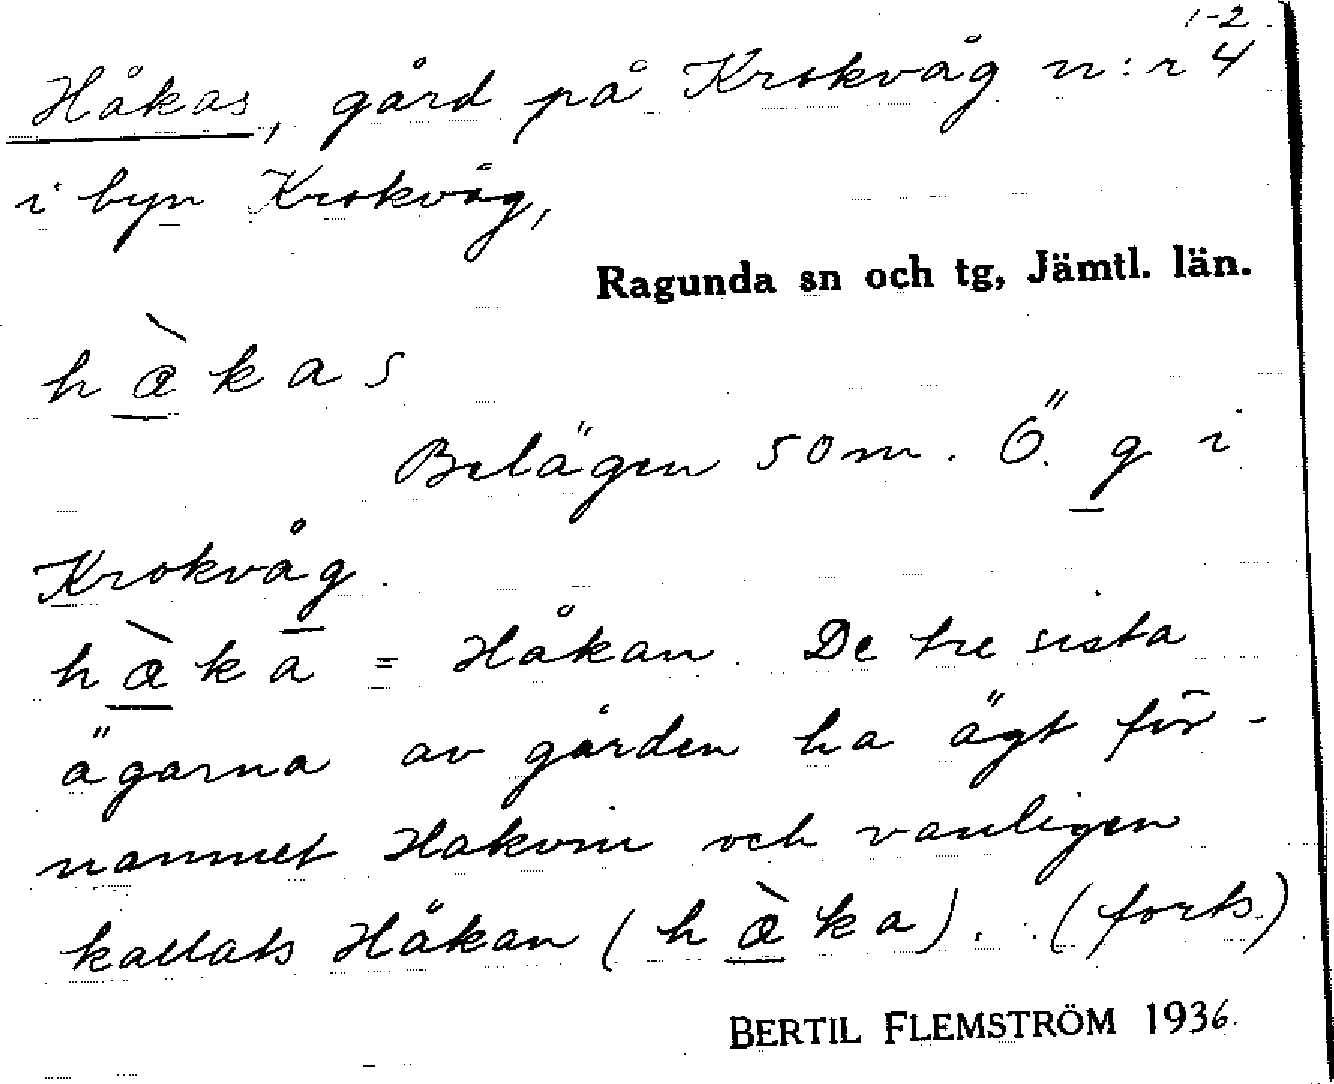 1-2
Håkas, gård på Krokvåg n:r 4
i byn Krokvåg,
Ragunda sn och tg, Jämtl. län.
hàkas
Belägen 50 m. Ö. g i
Krokvåg.
hàka = Håkan. De tre sista
ägarna av gården ha ägt för-
namnet Hakvin och vanligen
kallats Håkan (hàka). (forts.)
BERTIL FLEMSTRÖM 1936.